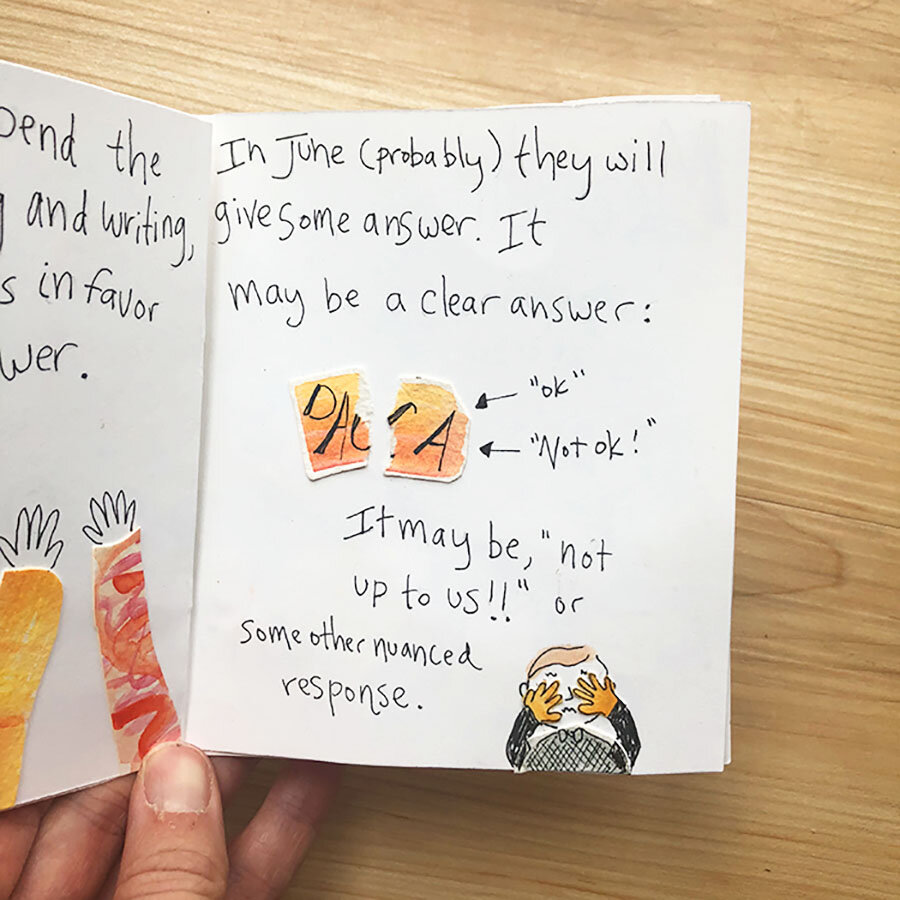 the
and writing,
s in favor
wer.
In June (probably) they will
give some answer. It
may be a clear answer:
DACA
"ok"
"Not ok!"
It may be, "not
up to us!!" or
some other nuanced
response.